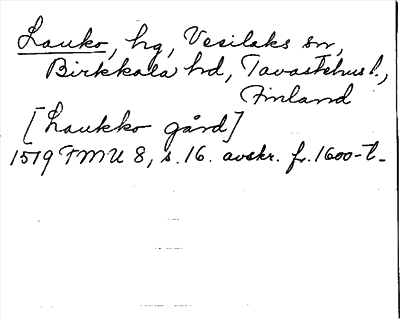 Lauko, hg, Vesilaks sn,
Birkkala hd, Tavastehus l.,
Finland
[Laukko gård]
1519 FMU 8, s. 16. avskr. fr. 1600-t.